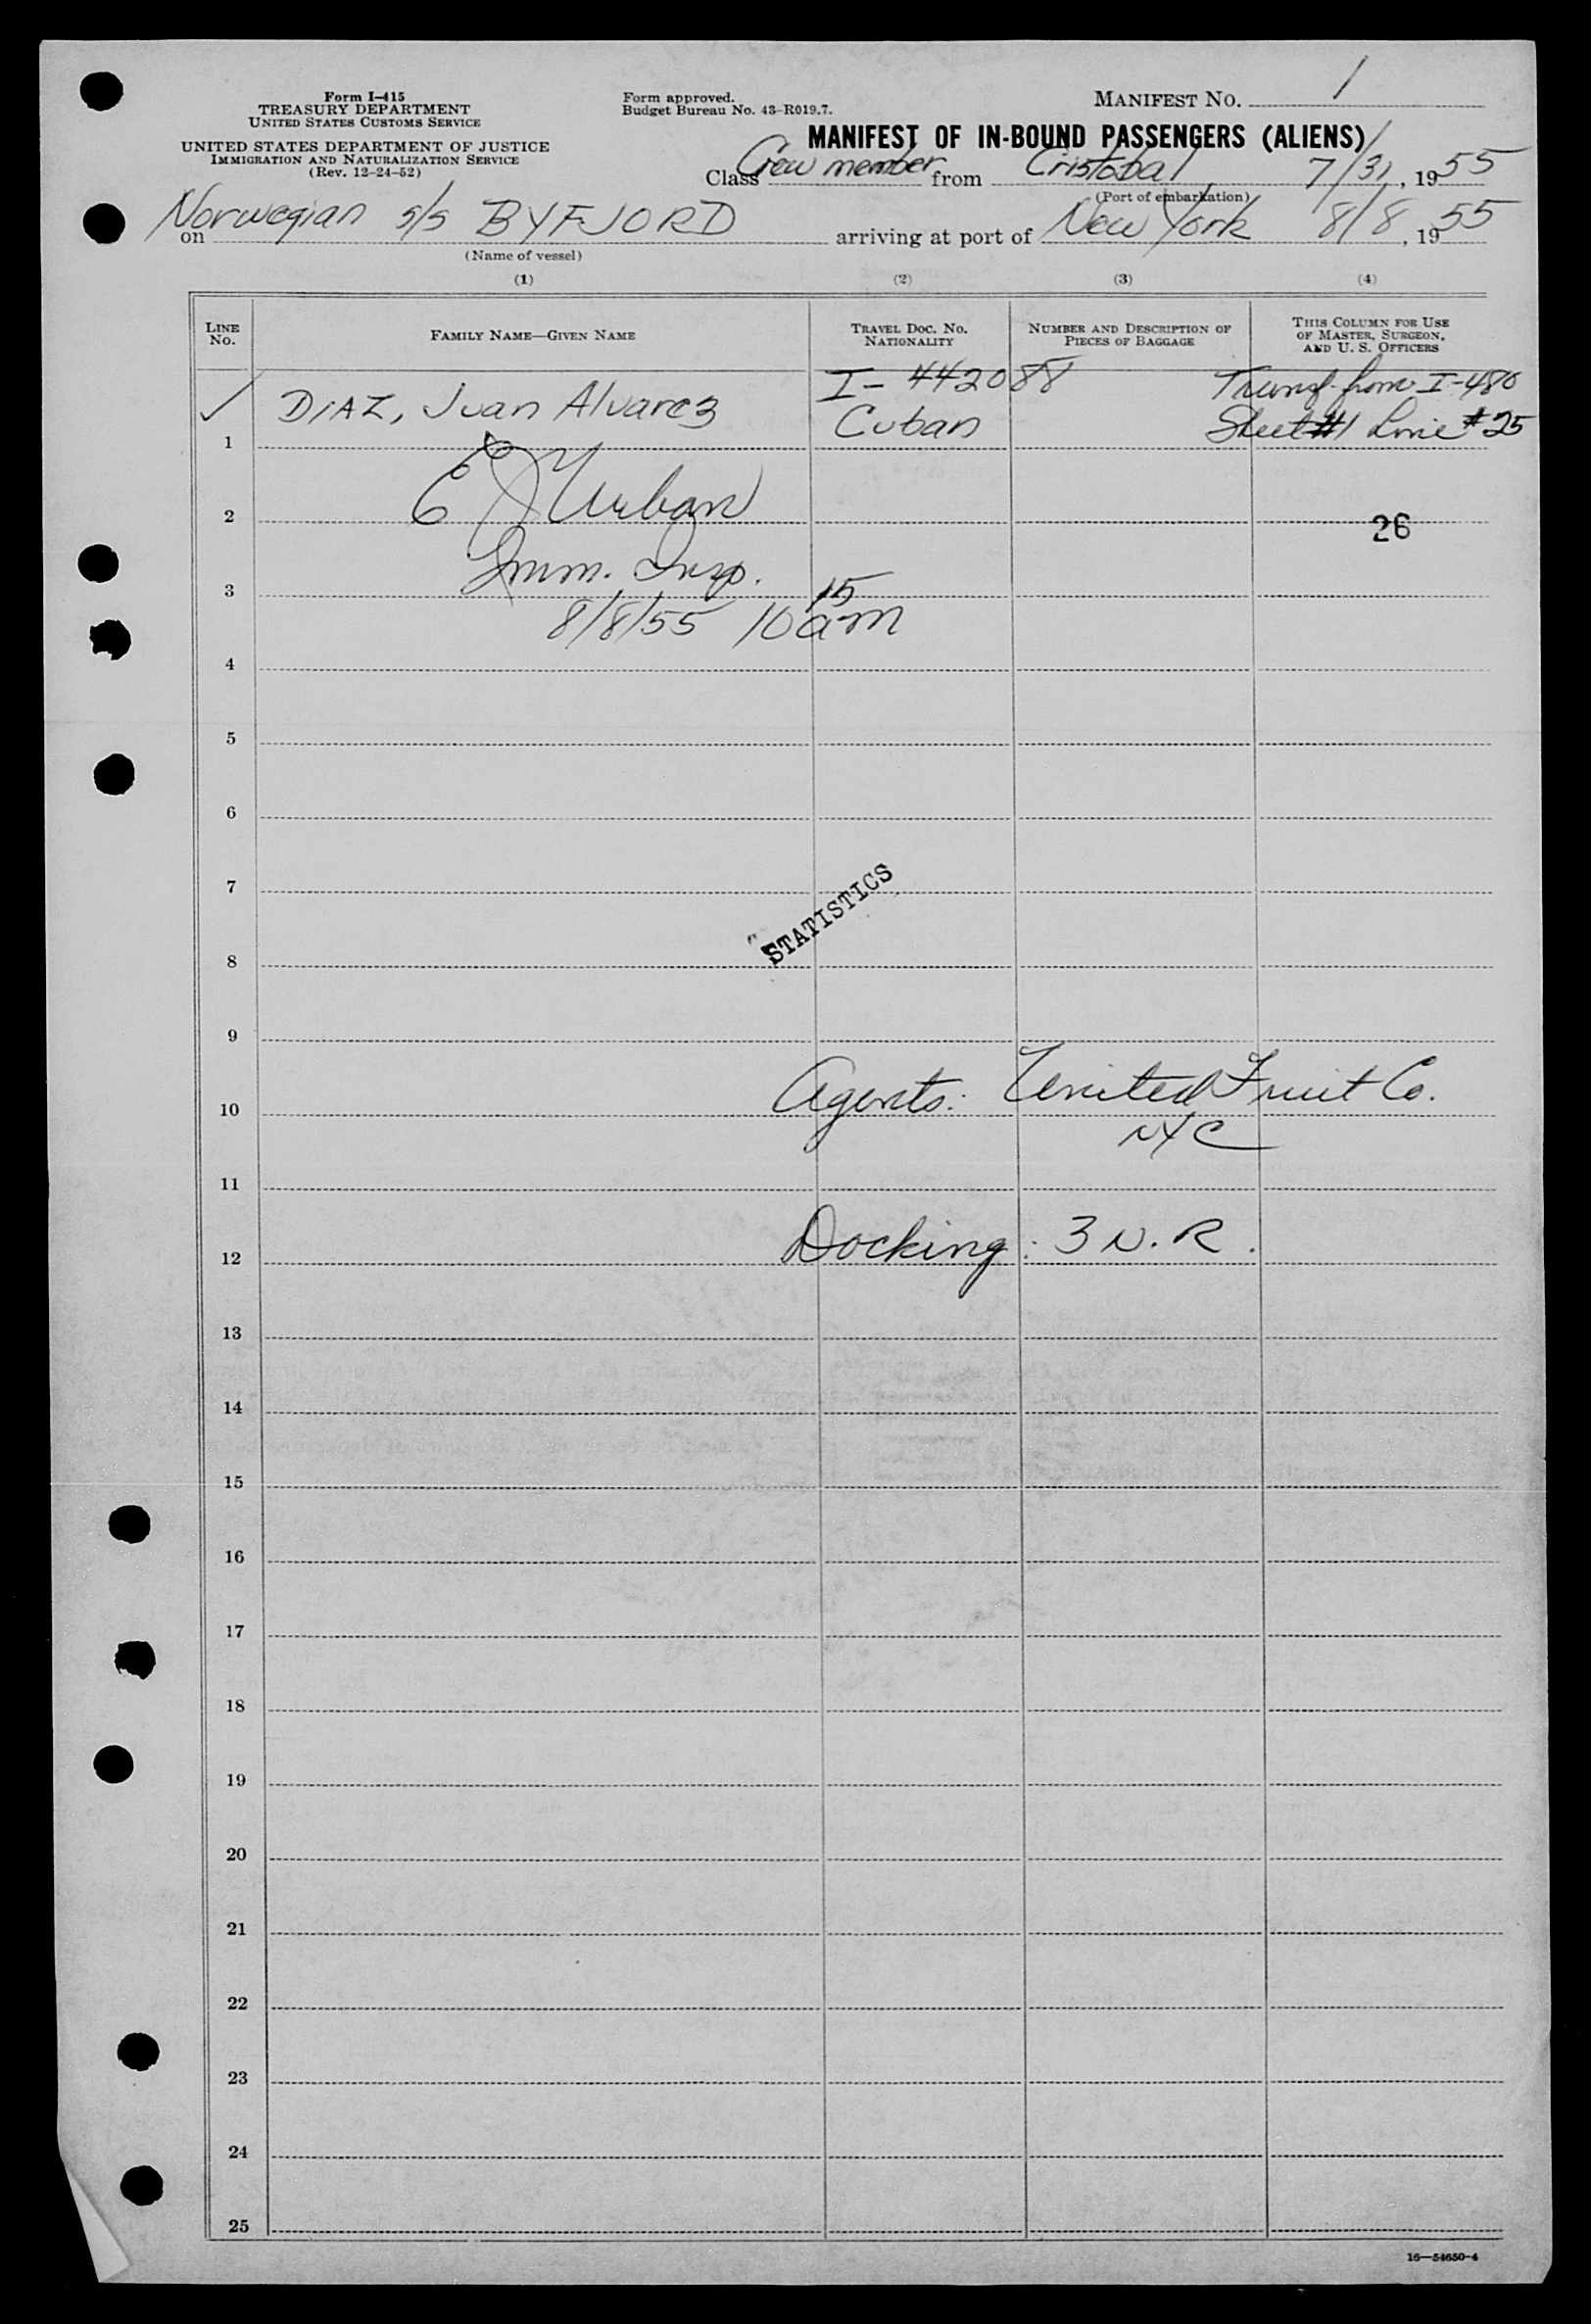 Form I-415
TREASURY DEPARTMENT
UNITED STATES CUSTOMS SERVICE
UNITED STATES DEPARTMENT OF JUSTICE
IMMIGRATION AND NATURALIZATION SERVICE
(Rev. 12-24-52)
Form approved.
Budget Bureau No. 43-R019.7.
MANIFEST NO. 1
MANIFEST OF IN-BOUND PASSENGERS (ALIENS)
Class Crew member from Cristobal 7/31, 1955
(Port of embarkation)
on Norwegian s/s BYFJORD arriving at port of New York 8/8, 1955
(Name of vessel)
(1) (2) (3) (4)
LINE No. FAMILY NAME—GIVEN NAME TRAVEL DOC. NO. NATIONALITY NUMBER AND DESCRIPTION OF PIECES OF BAGGAGE THIS COLUMN FOR USE OF MASTER, SURGEON, AND U. S. OFFICERS
✓ DIAZ, Juan Alvarez I-442088 Transf. from I-480
1 Cuban Sheet #1 Line #25
2 E J Urban 26
3 Imm. Insp.
8/8/55 10 15 am
4
5
6
7
STATISTICS
8
9
10 Agents: United Fruit Co.
NYC
11
12 Docking: 3 N. R.
13
14
15
16
17
18
19
20
21
22
23
24
25
16—54650-4